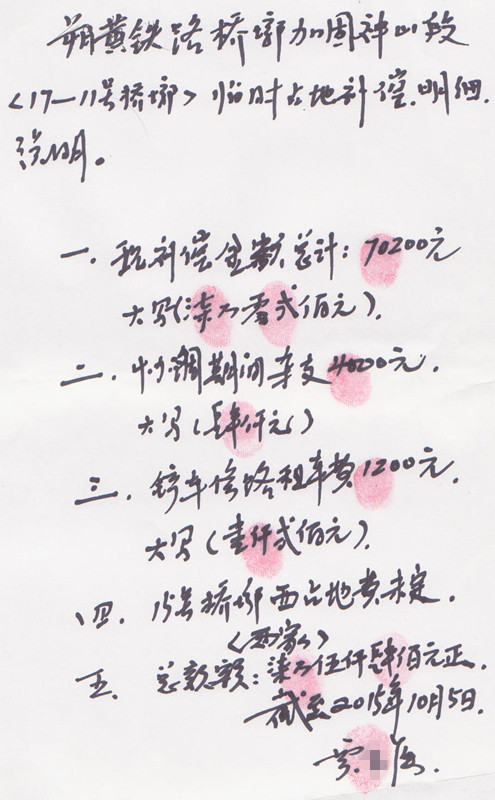 朔黄铁路桥墩加固神山段
<17—11号桥墩>临时占地补偿.明细.
说明。
一.现补偿金额总计:70200元
大写(柒万零弍佰元).
二.协调期间杂支4000元.
大写(肆仟元)
三.铲车修路租车费1200元.
大写(壹仟弍佰元).
四.15号桥墩西占地费未定.
<两家>
五.总款额:柒万伍仟肆佰元正.
截至2015年10月5日.